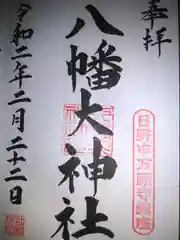 奉拝
八幡大神社
令和二年二月二十二日
日野市万願寺鎮座